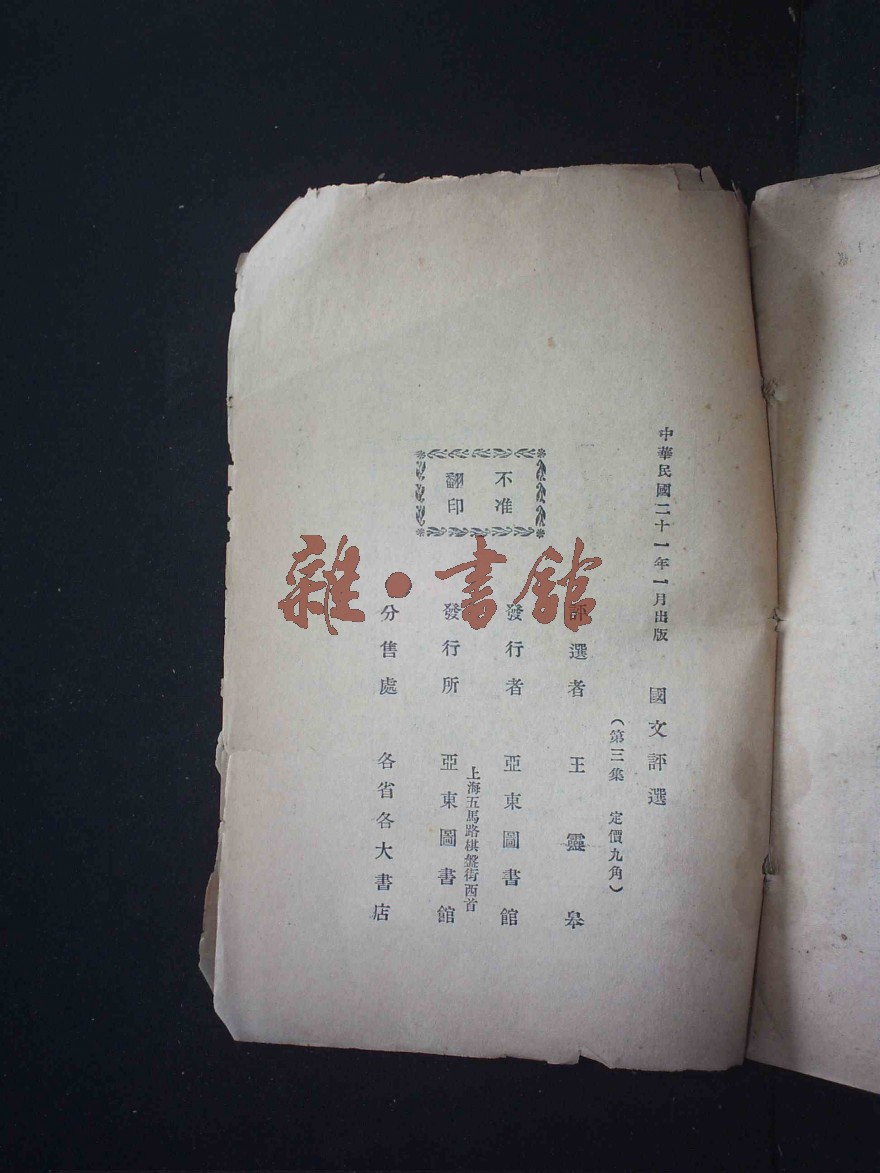 中華民國二十一年一月出版
國文評選
（第三集　定價九角）
評選者　王靈皋
發行者　亞東圖書館
上海五馬路棋盤街西首
發行所　亞東圖書館
分售處　各省各大書店
不准
翻印
雜·書館